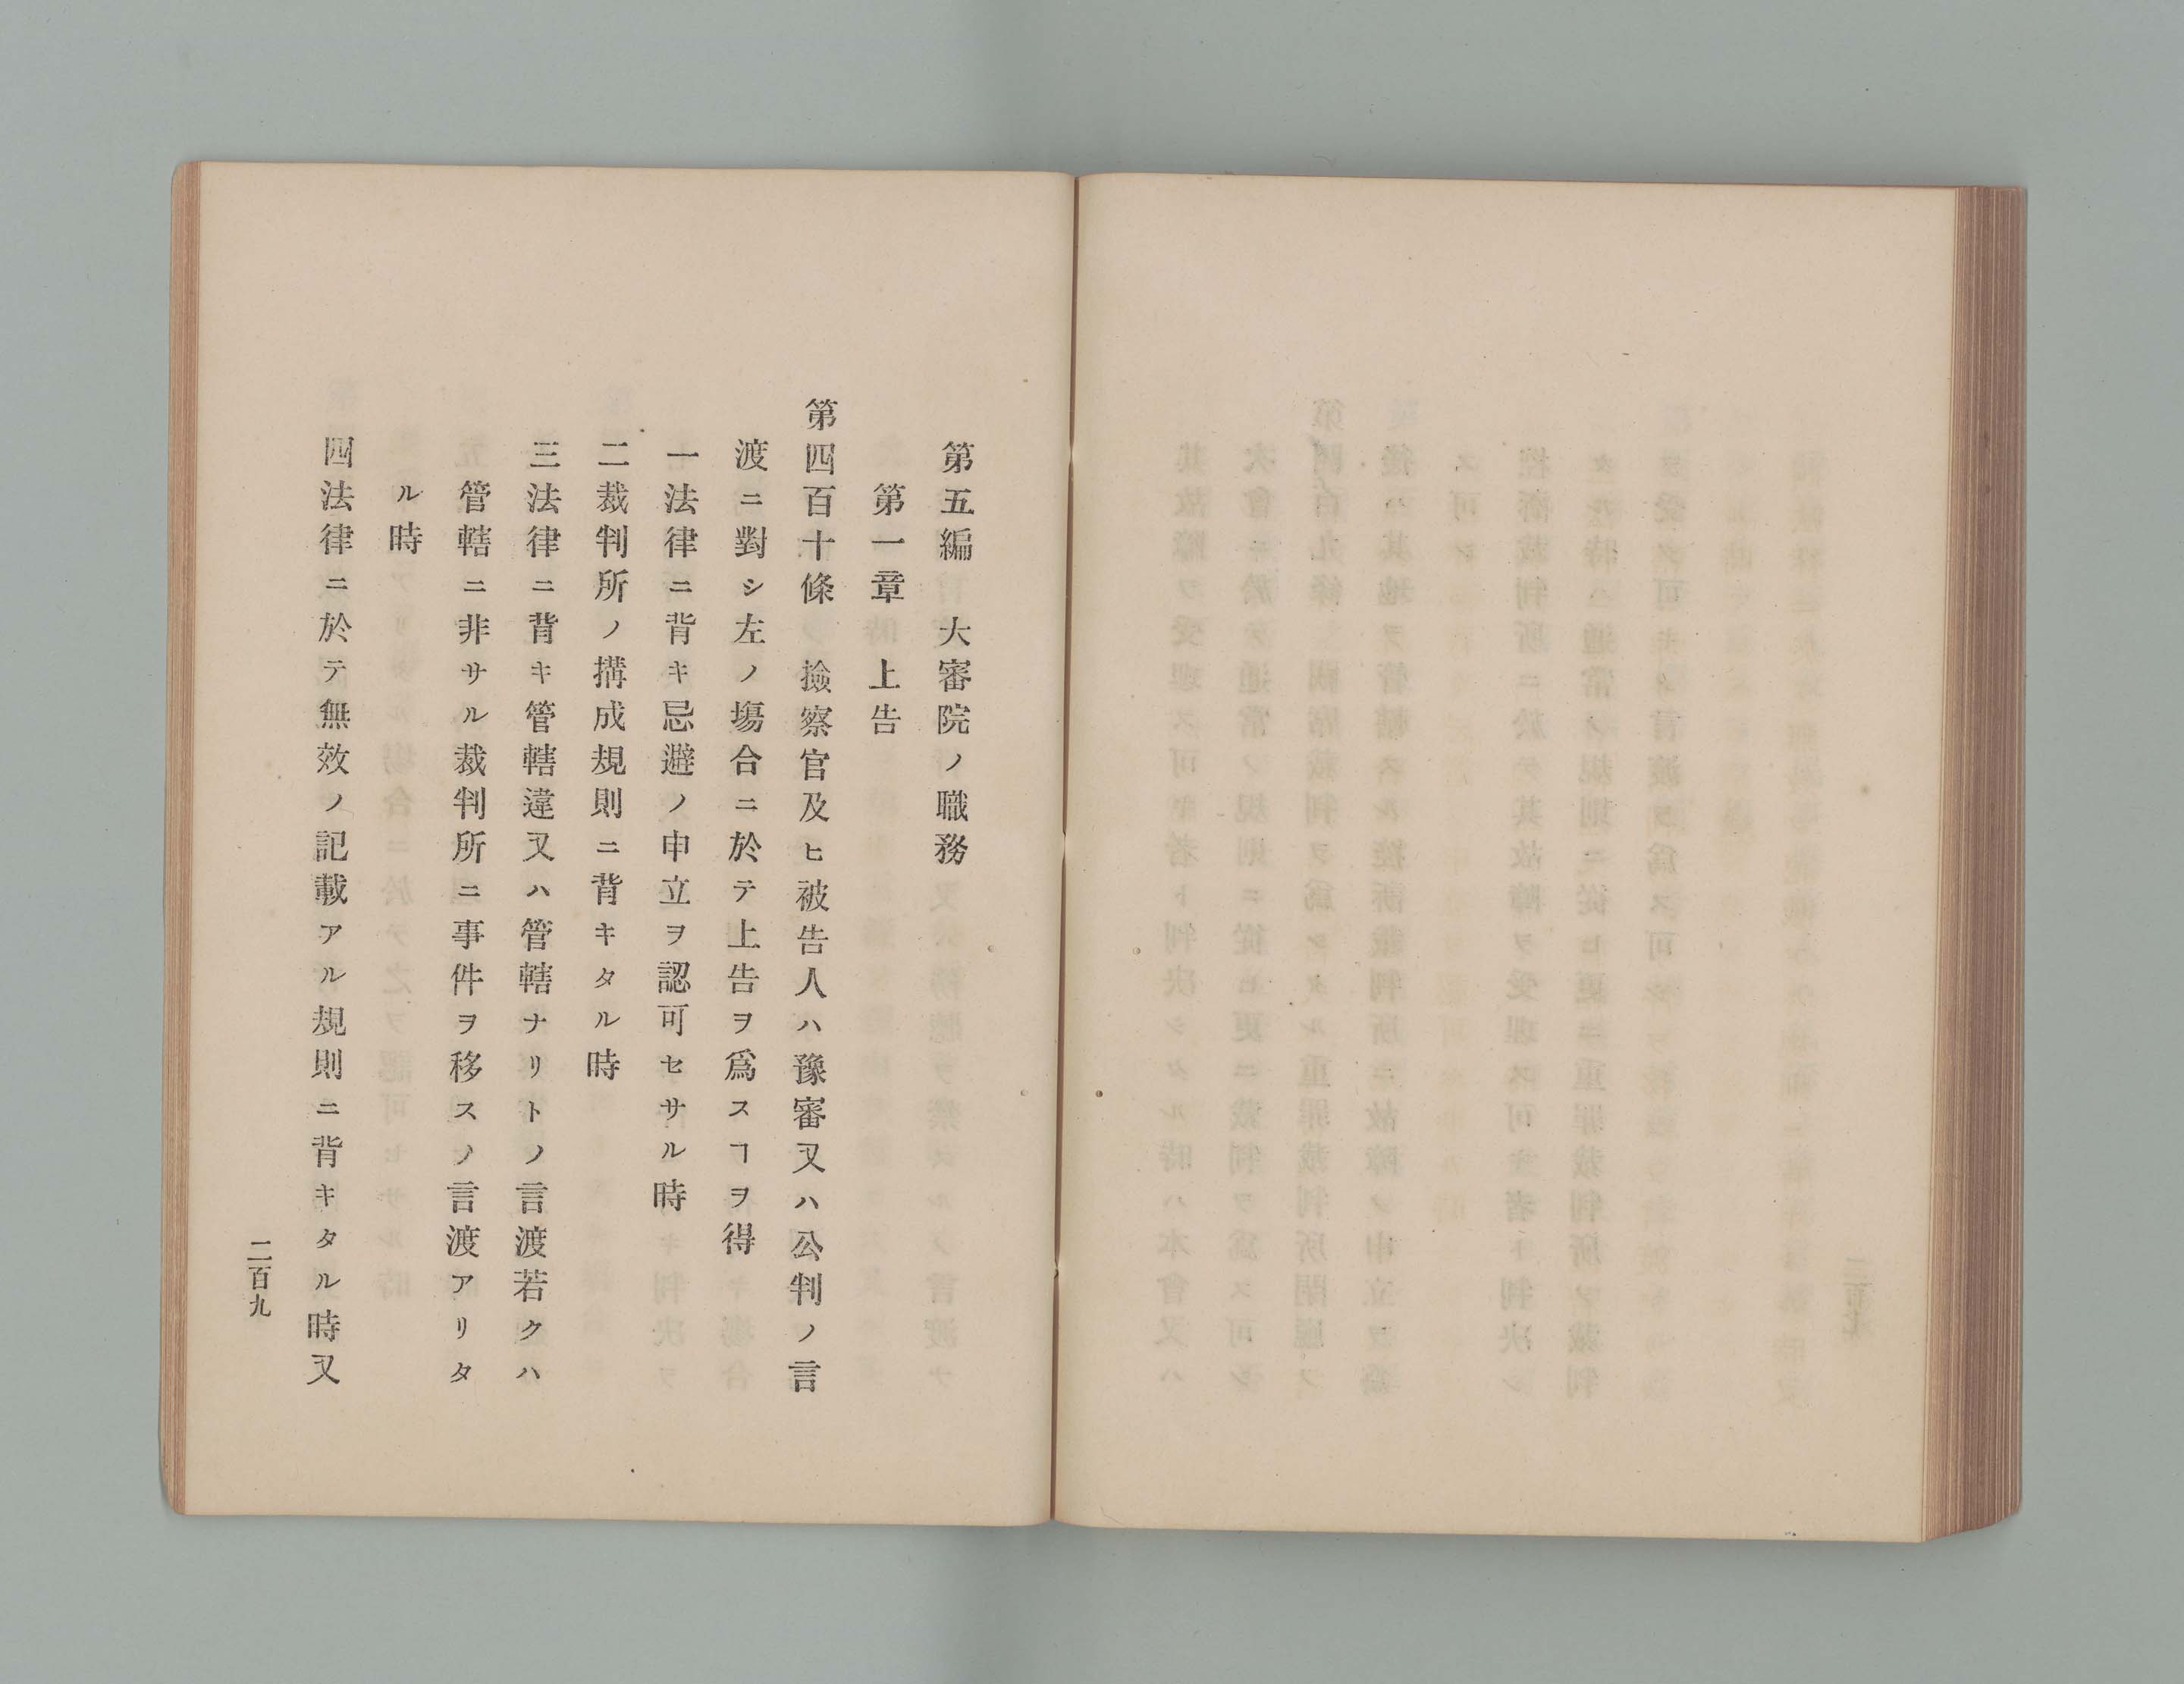 第五編　大審院ノ職務
第一章　上告
第四百十條　撿察官及ヒ被告人ハ豫審又ハ公判ノ言
渡ニ對シ左ノ塲合ニ於テ上告ヲ爲スヿヲ得
一法律ニ背キ忌避ノ申立ヲ認可セサル時
二裁判所ノ搆成規則ニ背キタル時
三法律ニ背キ管轄違又ハ管轄ナリトノ言渡若クハ
管轄ニ非サル裁判所ニ事件ヲ移スノ言渡アリタ
ル時
四法律ニ於テ無效ノ記載アル規則ニ背キタル時又
二百九